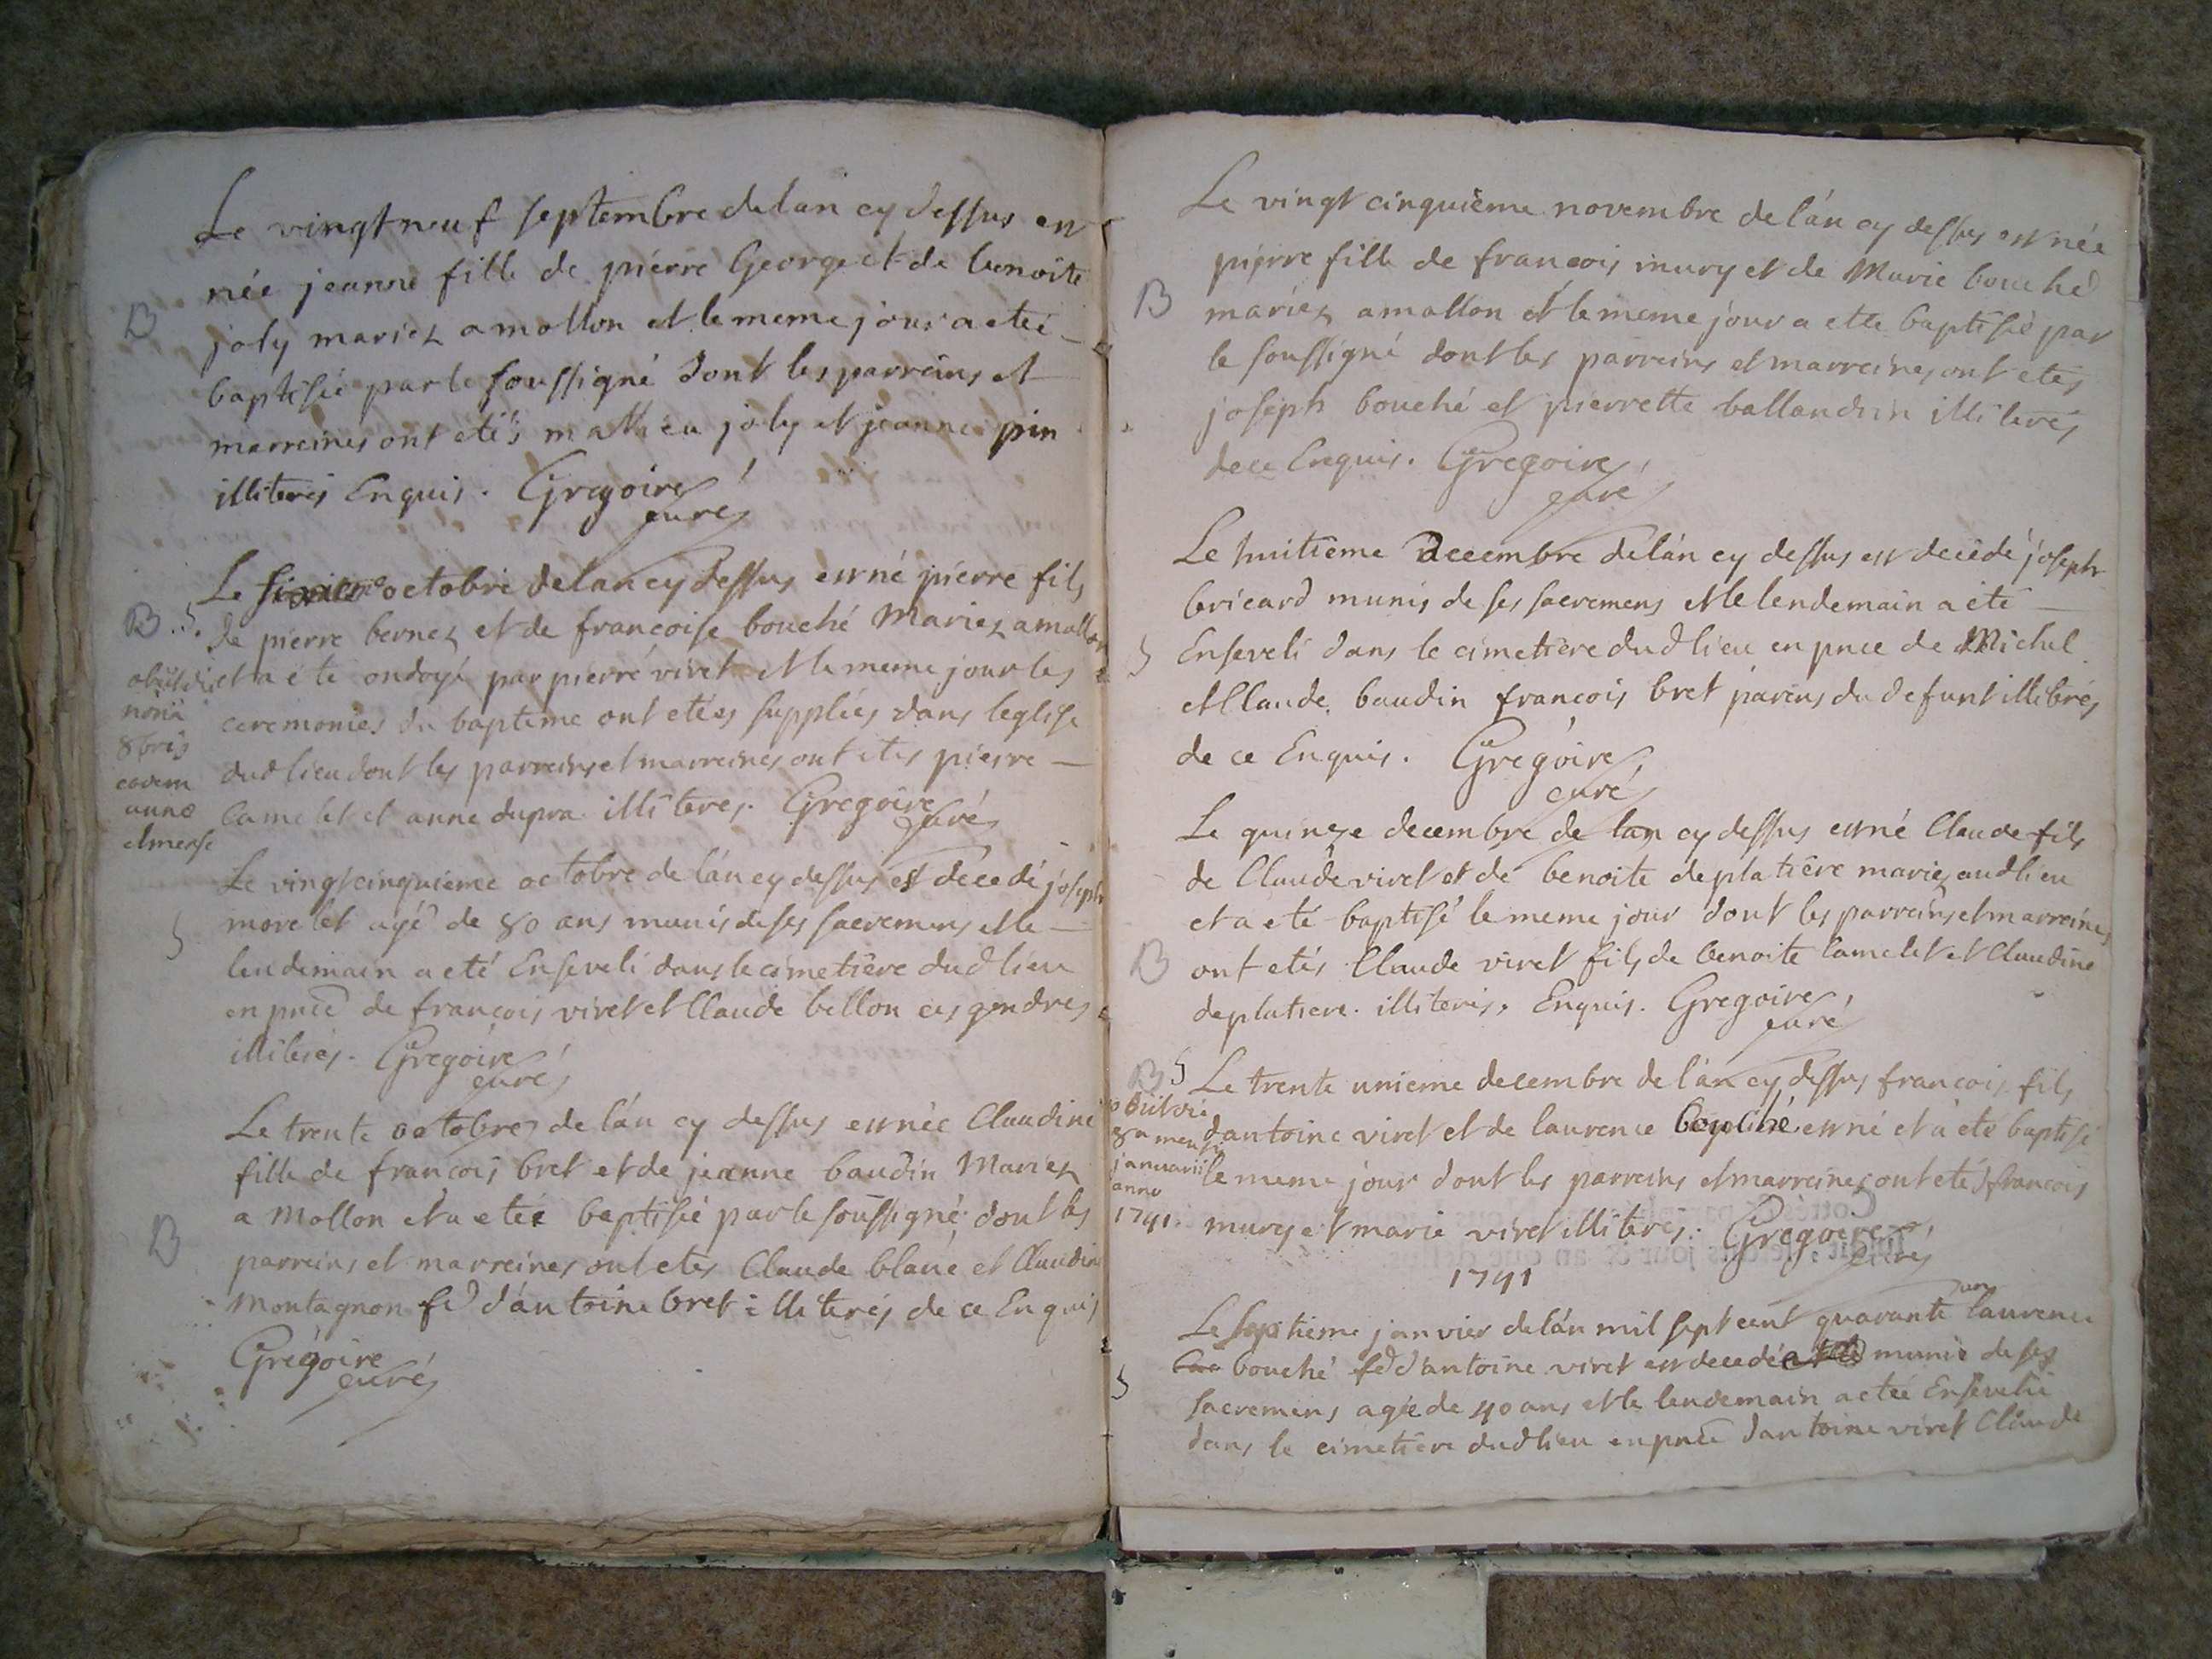 Le vingt neuf septembre de lan cy dessus est
née jeanne fille de pierre George et de benoite
B
joly mariez a mollon et le meme jour a eteé
baptisée par le soussigné dont les parreins et
marreines ont etés mathieu joly et jeanne pin
illiterés Enquis. Gregoire
curé
Le octobre de lan cy dessus est né pierre fils
B. S.
de pierre bernez et de francoise bouché Mariez a mollon
et a été ondoyé par pierre viret et le meme jour les
ceremonies du bapteme ont etées suppliés dans leglise
dud lieu dont les parreins et marreines ont etés pierre
Camelet et anne dupra illiteres. Gregoire
curé
obiit die
nona
8bris
eodem
anno
et mense
Le vingt cinquieme octobre de lán cy dessus est decedé joseph
S
morelet agé de 80 ans munis de ses sacremens et le
lendemain a eté Enseveli dans le cimetiere dud lieu
en pnce de francois viret et Claude bellon ces gendres
illiterés. Gregoire
curé
Le trente octobre de lán cy dessus est née Claudine
fille de francois bret et de jeanne baudin Mariez
a Mollon et a etée baptisée par le soussigné dont les
B
parreins et marreines ont etes Claude blanc et Claudine
Montagnon fe d'ántoine bret illiterés de ce Enquis
Gregoire
curé
Le vingt cinquiême novembre de lán cy dessus est née
pierre fille de francois mury et de Marie bouché
B
mariez a mollon et le meme jour a ette baptisée par
le soussigné dont les parreins et marreines ont etés
joseph bouché et pierrette ballandrin illiterés
de ce Enquis. Gregoire
curé
Le huitième Decembre de lán cy dessus est decédé joseph
bricard munis de ses sacremens et le lendemain a eté
S
Enseveli dans le cimetière dud lieu en pnce de Michel
et Claude baudin francois bret parens du defunt illiterés
de ce Enquis. Gregoire
curé
Le quinze decembre de lan cy dessus est né Claude fils
de Claude viret et de benoite deplatière mariez aud lieu
et a eté baptisé le meme jour dont les parreins et marreines
B
ont etés Claude viret fils de benoite Camelet et Claudine
deplatiere illiterés. Enquis. Gregoire
curé
B S
Le trente unieme decembre de lán cy dessus francois fils
dantoine viret et de laurence bouché est né et a eté baptisé
le meme jour dont les parreins et marreines ont etés francois
mury et marie viret illiteres. Gregoire
curé
obiit die
8a mensis
januarii
anno
1741
1741
Le septieme janvier de lán mil sept cent quarante un laurence
bouché fe d'antoine viret est decedée munie de ses
S
sacremens agée de 40 ans et le lendemain a eteé Ensevelie
dans le cimetière dud lieu en pnce d'antoine viret Claude